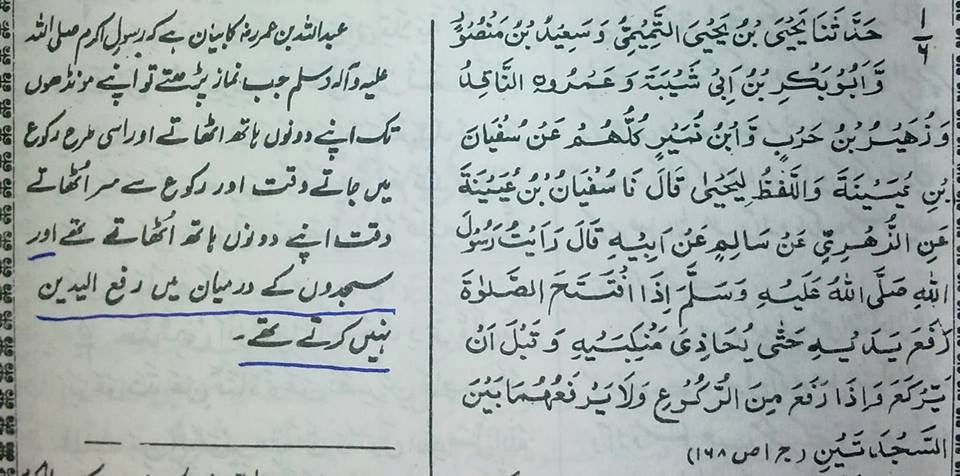 ۱
۶
حَدَّثَنَا يَحْيَى بْنُ يَحْيَى التَّمِيْمِيُّ وَ سَعِيْدُ بْنُ مَنْصُوْرٍ
وَّاَبُوْبَكْرِ بْنُ اَبِيْ شَيْبَةَ وَ عَمْرُو النَّاقِدُ
وَ زُهَيْرُ بْنُ حَرْبٍ وَّابْنُ نُمَيْرٍ كُلُّهُمْ عَنْ سُفْيَانَ
بْنِ عُيَيْنَةَ وَاللَّفْظُ لِيَحْيٰى قَالَ نَا سُفْيَانُ بْنُ عُيَيْنَةَ
عَنِ الزُّهْرِيِّ عَنْ سَالِمٍ عَنْ اَبِيْهِ قَالَ رَاَيْتُ رَسُوْلَ
اللهِ صَلَّى اللهُ عَلَيْهِ وَسَلَّمَ اِذَا افْتَتَحَ الصَّلٰوةَ
رَفَعَ يَدَيْهِ حَتّٰى يُحَاذِىَ مَنْكِبَيْهِ وَ قَبْلَ اَنْ
يَّرْكَعَ وَ اِذَا رَفَعَ مِنَ الرُّكُوْعِ وَلَا يَرْفَعُهُمَا بَيْنَ
السَّجْدَتَيْنِ (ج ۱ ص ۱۶۸)
عبداللہ بن عمر رضؓ کا بیان ہے کہ رسول اکرم صلی اللہ
علیہ وآلہ وسلم جب نماز پڑھتے تو اپنے مونڈھوں
تک اپنے دونوں ہاتھ اٹھاتے اور اسی طرح رکوع
میں جاتے وقت اور رکوع سے سر اُٹھاتے
وقت اپنے دونوں ہاتھ اُٹھاتے تھے اور
سجدوں کے درمیان میں رفع الیدین
نہیں کرتے تھے۔